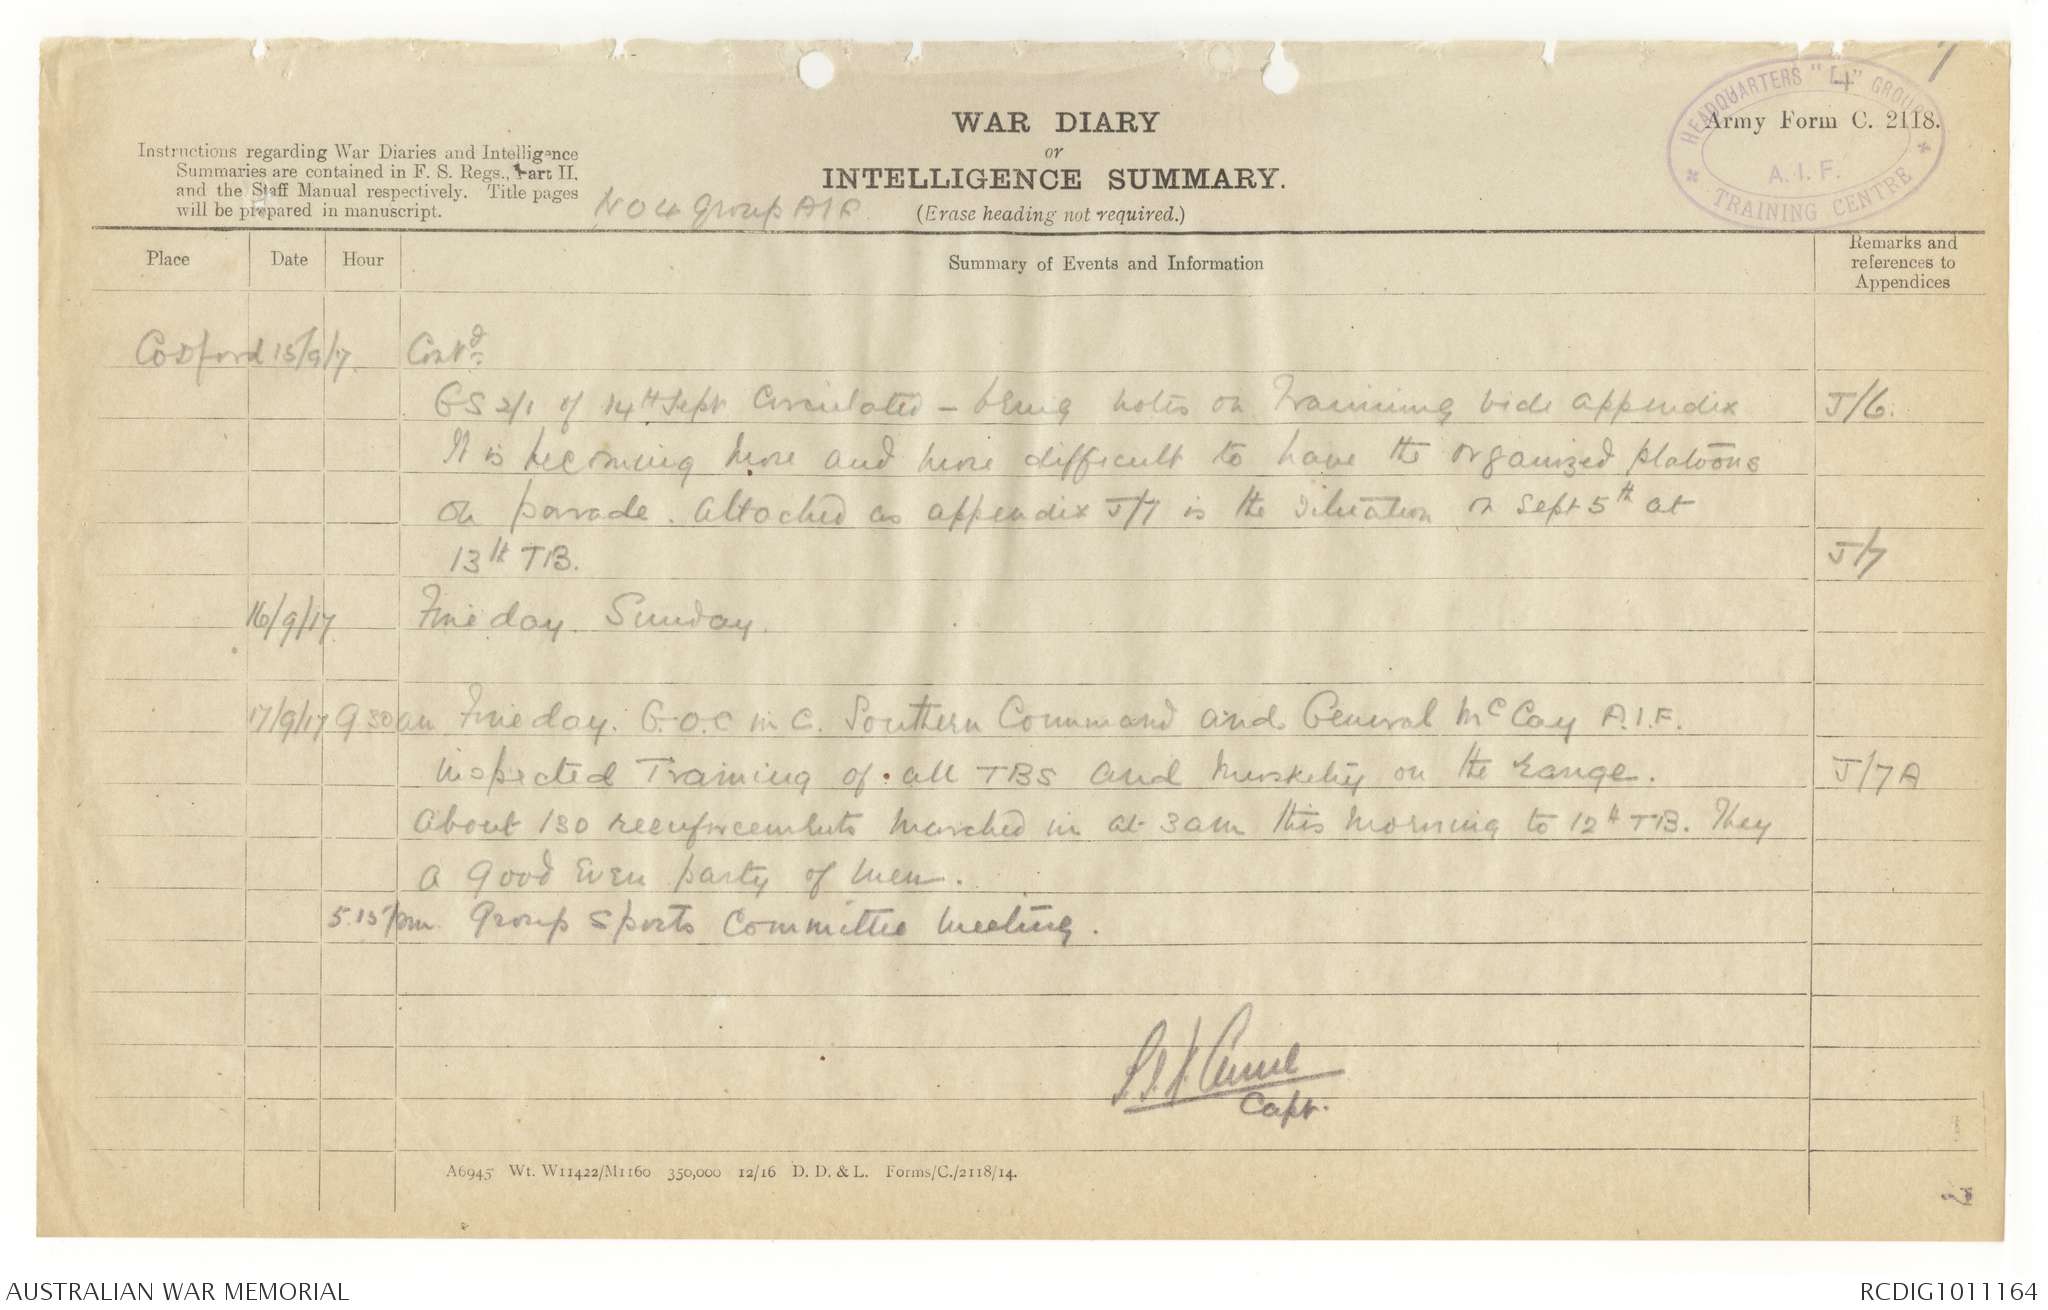 7
HEADQUARTERS "4" GROUP
A.I.F.
TRAINING CENTRE
WAR DIARY
or
INTELLIGENCE SUMMARY.
(Erase heading not required.)
Army Form C. 2118.
Instructions regarding War Diaries and Intelligence
Summaries are contained in F. S. Regs., Part II.
and the Staff Manual respectively. Title pages
will be prepared in manuscript.
No 4 Group AIF
Place
Date
Hour
Summary of Events and Information
Remarks and
references to
Appendices
Codford 15/9/17. Contd.
GS 2/1 of 14th Sept circulated - being notes on Training vide appendix J/6.
It is becoming more and more difficult to have the organized platoons
on parade. Attached as appendix J/7 is the situation on Sept 5th at
13th TB. J/7
16/9/17 Fine day. Sunday.
17/9/17 9 30 am Fine day. G.O.C in C. Southern Command and General McCay A.I.F.
inspected Training of all TBS and musketry on the range. J/7A
About 130 reenforcements marched in at 3am this morning to 12th TB. They
a good even party of men.
5.15 pm Group Sports Committee meeting.
Capt.
A6945 Wt. W11422/M1160 350,000 12/16 D. D. & L. Forms/C./2118/14.
AUSTRALIAN WAR MEMORIAL
RCDIG1011164